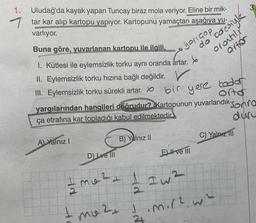 1. Uludağ'da kayak yapan Tuncay biraz mola veriyor. Eline bir mik-
tar kar alıp kartopu yapıyor. Kartopunu yamaçtan aşağıya yu-
varlıyor.
Buna göre, yuvarlanan kartopu ile ilgili,
yarıçap da
orantılı
artar
I. Kütlesi ile eylemsizlik torku aynı oranda artar.
II. Eylemsizlik torku hızına bağlı değildir.
III. Eylemsizlik torku sürekli artar. bir yere kadar
artar
sonra
yargılarından hangileri doğrudur? (Kartopunun yuvarlandık-
ça etrafına kar topladığı kabul edilmektedir.)
A) Yalnız I
B) Yalnız II
C) Yalnız III
D) I ve III
E) II ve III
1/2 mv² + 1/2 Iw²
1/2 mv² + 1/2 .m.r².w²